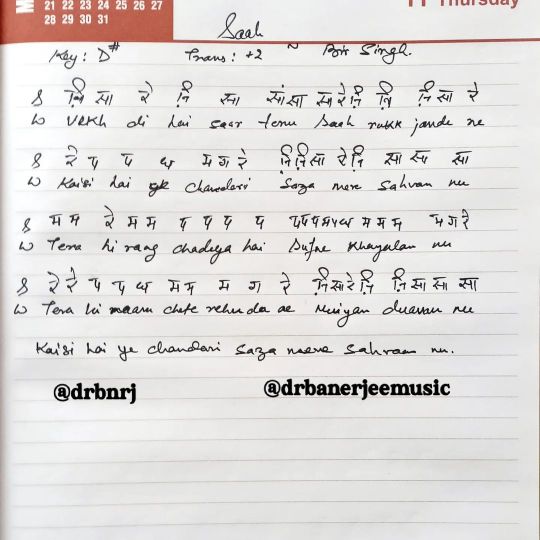 21 22 23 24 25 26 27
28 29 30 31
11 Thursday
Saah
Key: D# Trans: +2 ~ Singh.
S नि सा रे नि सा सांसा सारेनि नि निसा रे
W Vekh di hai saar tenu Saah rukk jande ne
S रे प प ध मगरे निनिसा रेनि सा सा सा
W Kaisi hai ye chandari Saza mere sahvan nu
S म म रे म म प प प प पपपमपध म म म मगरे
W Tera hi rang chadeya hai Sufne Khayalan nu
S रे रे प प ध म म म ग रे निसारेनि निसा सा सा
W Tera hi naam chete rehnda ae Meriyan duavan nu
Kaisi hai ye chandari saza mere sahvan nu.
@drbnrj @drbanerjeemusic